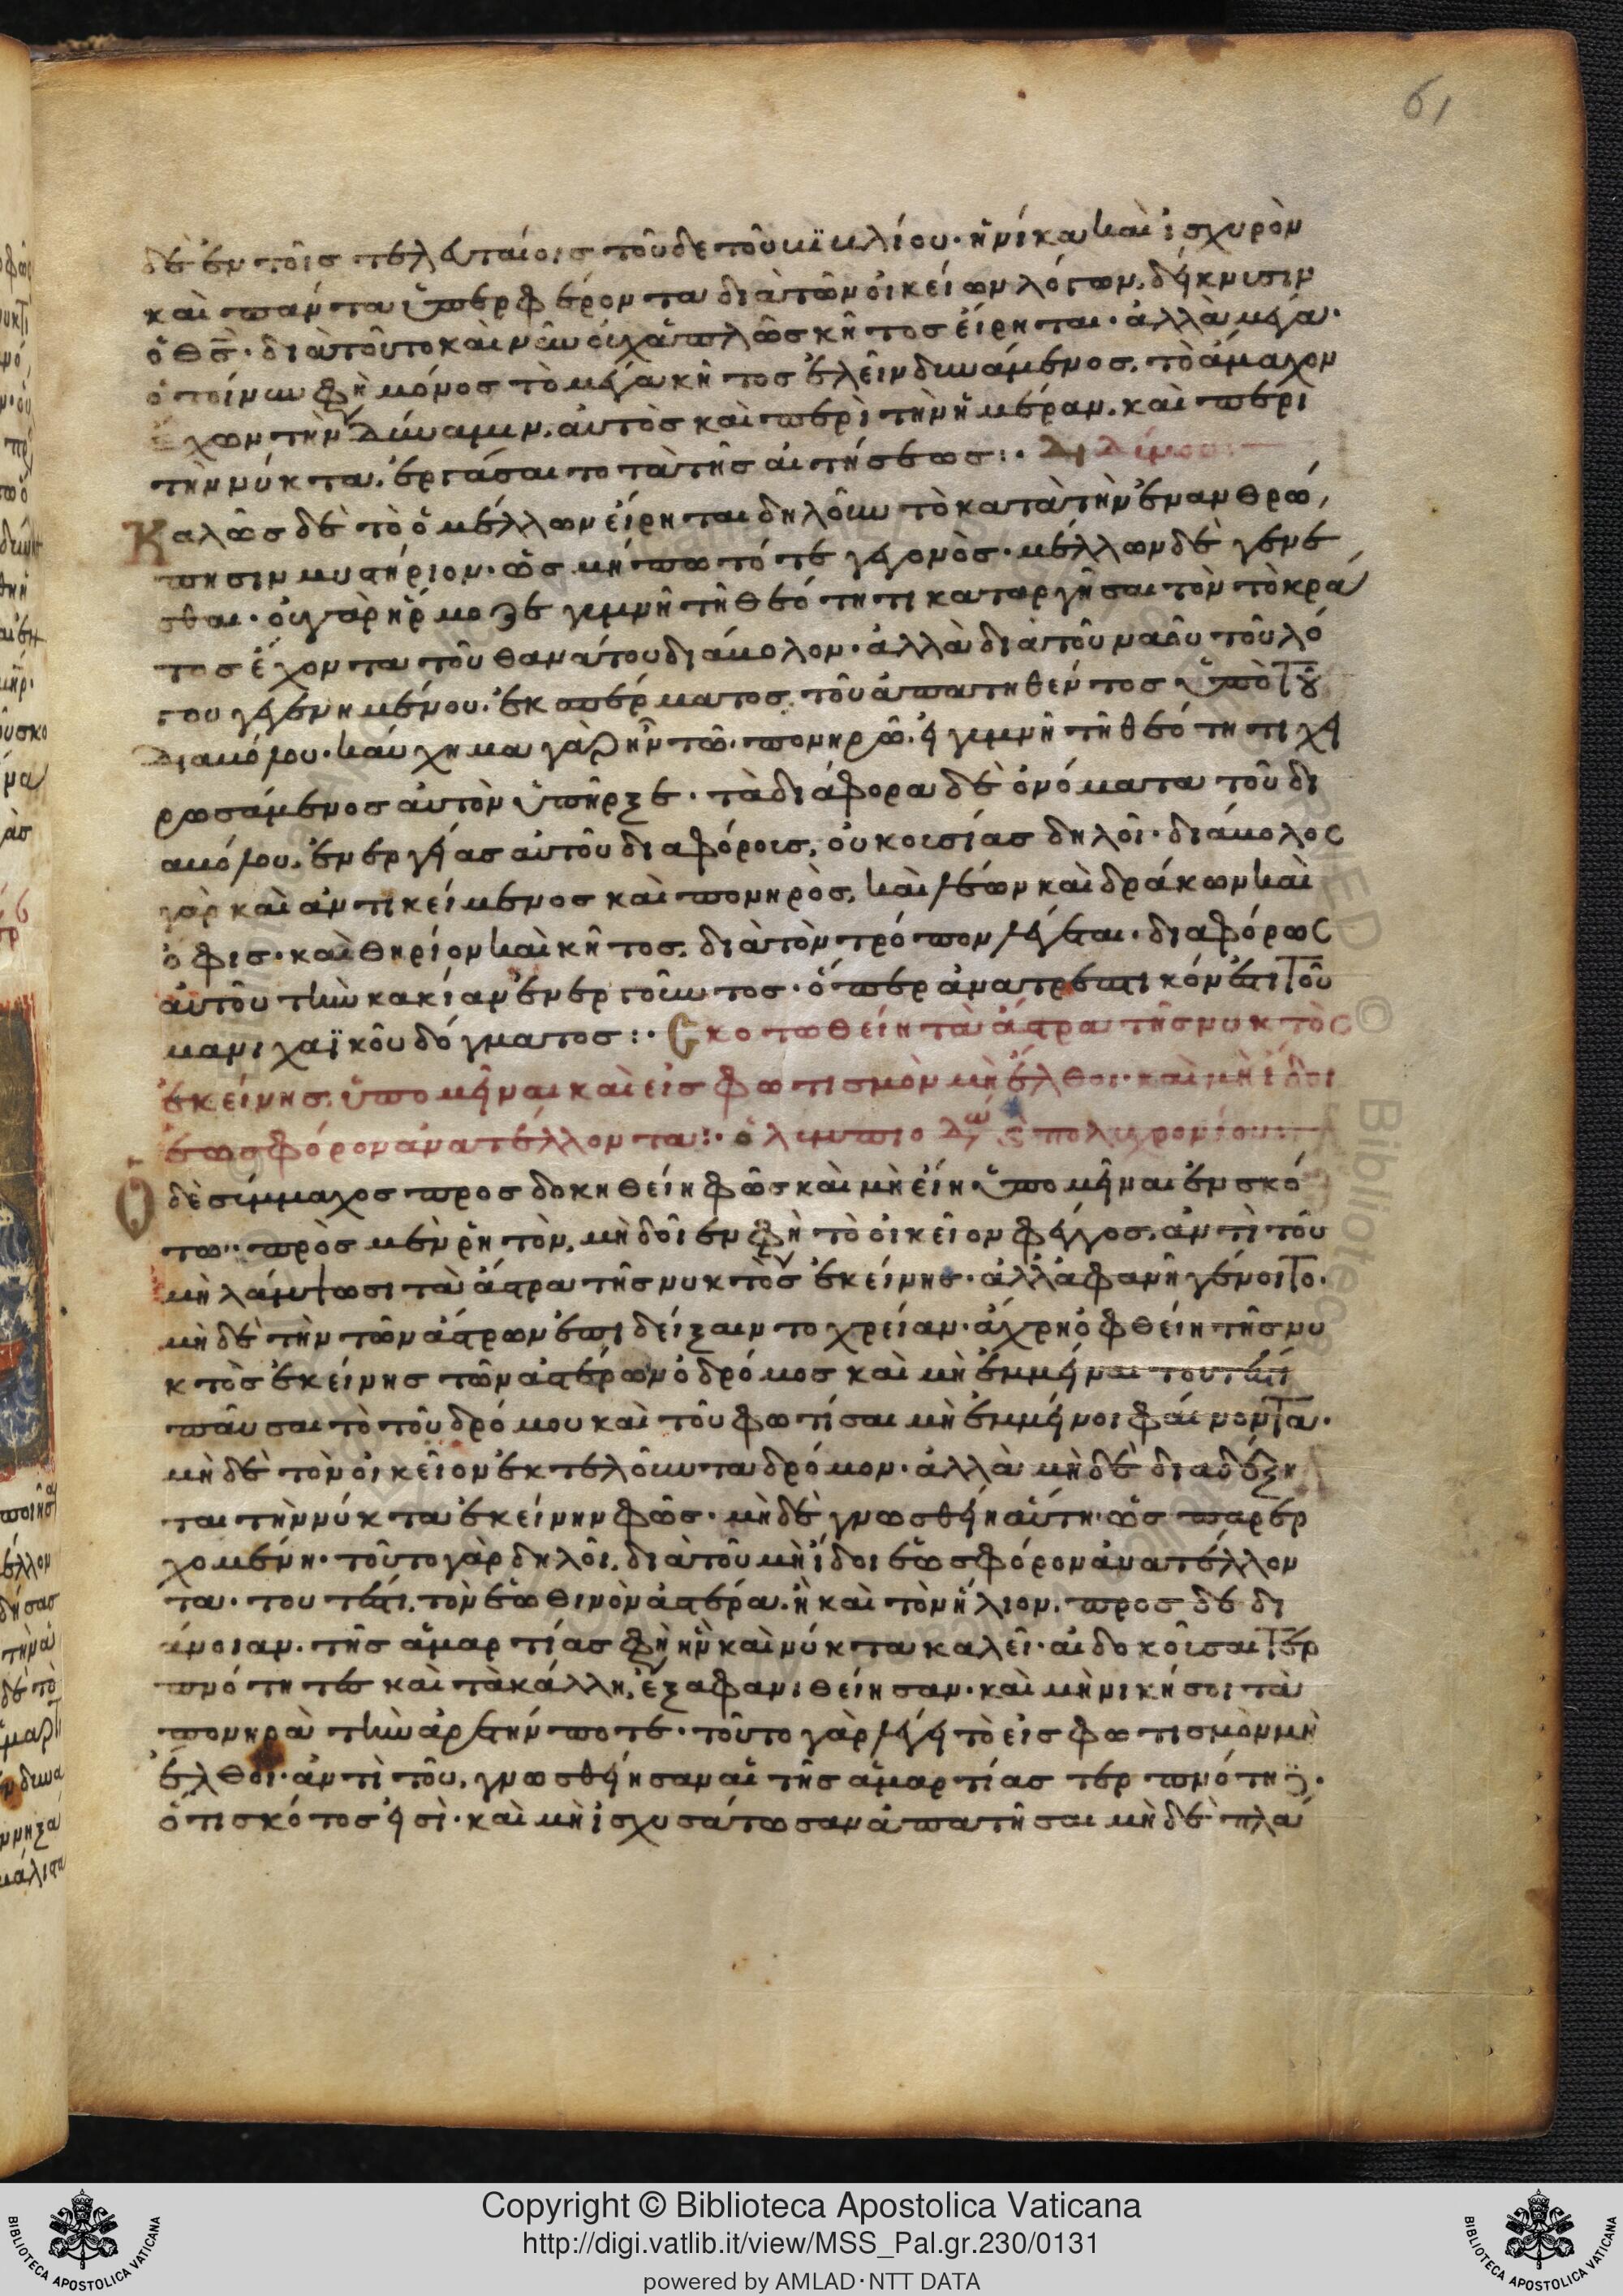 61
δὲ ἐν τοῖς τελευταίοις τοῦδε τοῦ βιβλίου· ἡνίκα καὶ ἰσχυρὸν
καὶ πάντα ὑπερφέροντα διὰ τῶν οἰκείων λόγων, δείκνυσιν
ὁ θς̄· διὰ τοῦτο καὶ νῦν οὐχ ἁπλῶς κῆτος εἴρηται· ἀλλὰ μέγα·
ὁ τοίνυν φη μόνος τὸ μέγα κῆτος ἑλεῖν δυνάμενος, τὸ ἄμαχον
ἔχων τὴν δύναμιν, αὐτὸς καὶ περὶ τὴν ἡμέραν, καὶ περι
τὴν νύκτα, ἐργάσαιτο τὰ τῆς αἰτήσεως :· Διδύμου:
Καλῶς δὲ τὸ ὁ μέλλων εἴρηται δηλοῦν τὸ κατὰ τὴν ἐνανθρώ
πησιν μυστήριον· ὡς μήπω τότε γεγονὸς· μέλλων δὲ γενέ
σθαι· οὐ γὰρ ἥρμοζε γυμνῇ τῇ θεότητι καταργῆσαι τὸν τὸ κρά
τος ἔχοντα τοῦ θανάτου διάβολον· ἀλλὰ διὰ τοῦ ναοῦ τοῦ λό
γου γεγενημένου, ἐκ σπέρματος τοῦ ἀπατηθέντος ὑπὸ τοῦ
διαβόλου· καύχημα γὰρ ἦν τῶ πονηρῶ, εἰ γυμνῇ τῇ θεότητι χει
ρωσάμενος αὐτὸν ὑπῆρξε· τὰ διάφορα δὲ ὀνόματα τοῦ δι
αβόλου, ἐνεργείας αὐτοῦ διαφόρους, οὐκ οὐσίας δηλοῖ· διάβολος
γὰρ καὶ ἀντικείμενος καὶ πονηρὸς, καὶ λέων καὶ δράκων καὶ
ὄφις· καὶ θηρίον καὶ κῆτος, διὰ τὸν τρόπον λέγεται· διαφόρως
αὐτοῦ τὴν κακίαν ἐνεργοῦντος· ὅπερ ἀνατρεπτικόν ἐστι τοῦ
μανιχαϊκοῦ δόγματος :· Σκοτωθείη τὰ ἄστρα τῆς νυκτὸς
ἐκείνης, ὑπομείναι καὶ εἰς φωτισμὸν μὴ ἔλθοι· καὶ μὴ ἴδοι
ἑωσφόρον ἀνατέλλοντα :· ὀλυμπιοδώ ϛ πολυχρονίου:
Ὁ δὲ σύμμαχος προσδοκηθείη φῶς καὶ μὴ εἴη ὑπομεῖναι ἐν σκό
τω·· πρὸς μὲν ῥητὸν, μὴ δοῖεν φη τὸ οἰκεῖον φέγγος, ἀντὶ τοῦ
μὴ λάμψωσι τὰ ἄστρα τῆς νυκτὸς ἐκείνης· ἀλλ' ἀφανῆ γένοιτο·
μὴ δὲ τὴν τῶν ἄστρων ἐπιδείξαιντο χρείαν· ἀχρηοφθείη τῆς νυ
κτὸς ἐκείνης τῶν ἀστέρων ὁ δρόμος καὶ μὴ ἐμμείναι τουτέστι
παύσαιτο τοῦ δρόμου καὶ τοῦ φωτίσαι μὴ ἐμμένοι φαίνοντα·
μὴ δὲ τὸν οἰκεῖον ἐκτελοῦντα δρόμον· ἀλλὰ μὴ δὲ διαδέξη
ται τὴν νύκτα ἐκείνην φῶς· μὴ δὲ γνωσθείη αὕτη, ὡς παρερ
χομένη· τοῦτο γὰρ δηλοῖ, διὰ τοῦ μὴ ἴδοι ἑωσφόρον ἀνατέλλον
τα· τουτέστι, τὸν ἑωθινὸν ἀστέρα, ἢ καὶ τὸν ἥλιον, προς δὲ δι
άνοιαν, τῆς ἁμαρτίας φη ἣν καὶ νύκτα καλεῖ· αἱ δοκοῦσαι τερ
πνότητες καὶ τὰ κάλλη, ἐξαφανιθείησαν· καὶ μὴ νικήσοι τὰ
πονηρὰ τὴν ἀρετήν ποτε· τοῦτο γὰρ λέγει τὸ εἰς φωτισμὸν μὴ
ἔλθοι· ἀντὶ τοῦ, γνωσθείησαν αἱ τῆς ἁμαρτίας τερπνότη··
ὅτι σκότος εἰσὶ· καὶ μὴ ἰσχυσάτωσαν ἀπατῆσαι μὴ δὲ πλα
Copyright © Biblioteca Apostolica Vaticana
http://digi.vatlib.it/view/MSS_Pal.gr.230/0131
powered by AMLAD·NTT DATA
BIBLIOTECA APOSTOLICA VATICANA
BIBLIOTECA APOSTOLICA VATICANA